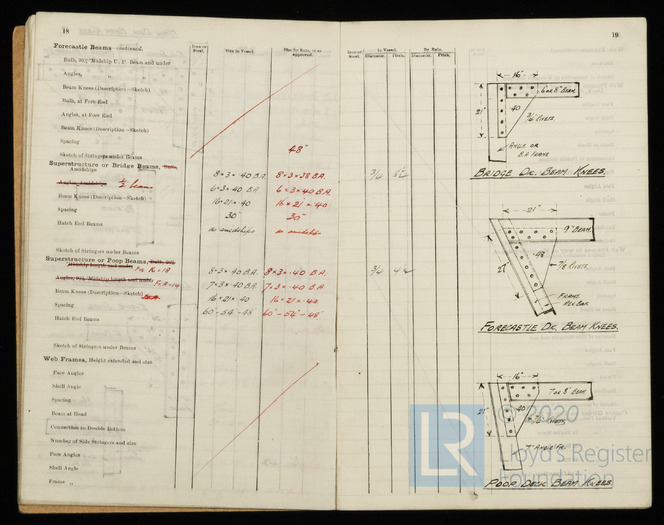 18
Forecastle Beams continued.
Iron or Steel.
Size in Vessel.
Size for Rule, or as approved.
Bulb, 20,? Midship U. D. Beam and under
Angles, " "
Beam Knees (Description—Sketch)
Bulb, at Fore End
Angles, at Fore End
Beam Knees (Description—Sketch)
Spacing
48"
Sketch of Stringers under Beams
Superstructure or Bridge Beams, Bulb,
Amidships 8×3×40 B.A. 8×3×38 B.A.
Angles, Amidships ½ beam 6×3×40 B.A. 6×3×40 B.A.
Beam Knees (Description—Sketch) 16×21×40 16×21×40
Spacing 30" 30"
Hatch End Beams as amidships as amidships
Sketch of Stringers under Beams
Superstructure or Poop Beams, Bulb,
Midship length and under 8×3×40 B.A. 8×3×40 B.A.
Angles, Midship length and under 7×3×40 B.A. 7×3×40 B.A.
Beam Knees (Description—Sketch) 16×21×40 16×21×40
Spacing 60-54-48 60-54-48
Hatch End Beams
Sketch of Stringers under Beams
Web Frames, Height extended and size
Face Angles
Shell Angle
Spacing
Beam at Head
Connection to Double Bottom
Number of Side Stringers and size
Face Angles
Shell Angle
Frame "
19
Iron or Steel.
In Vessel.
By Rule.
Diameter.
Pitch.
Diameter.
Pitch.
3/4
3/4
16"
6 or 8" BEAM
21"
40
3/4 RIVETS
ANGLE OR
B.A FRAME
BRIDGE DK. BEAM KNEES.
21"
9" BEAM
27"
48
7/8 RIVETS
FRAME
REV BAR
FORECASTLE DK. BEAM KNEES.
16"
7 or 8" BEAM
21"
40
RIVETS
ANGLE FR.
POOP DECK BEAM KNEES
© 2020
LR
Lloyd's Register
Foundation